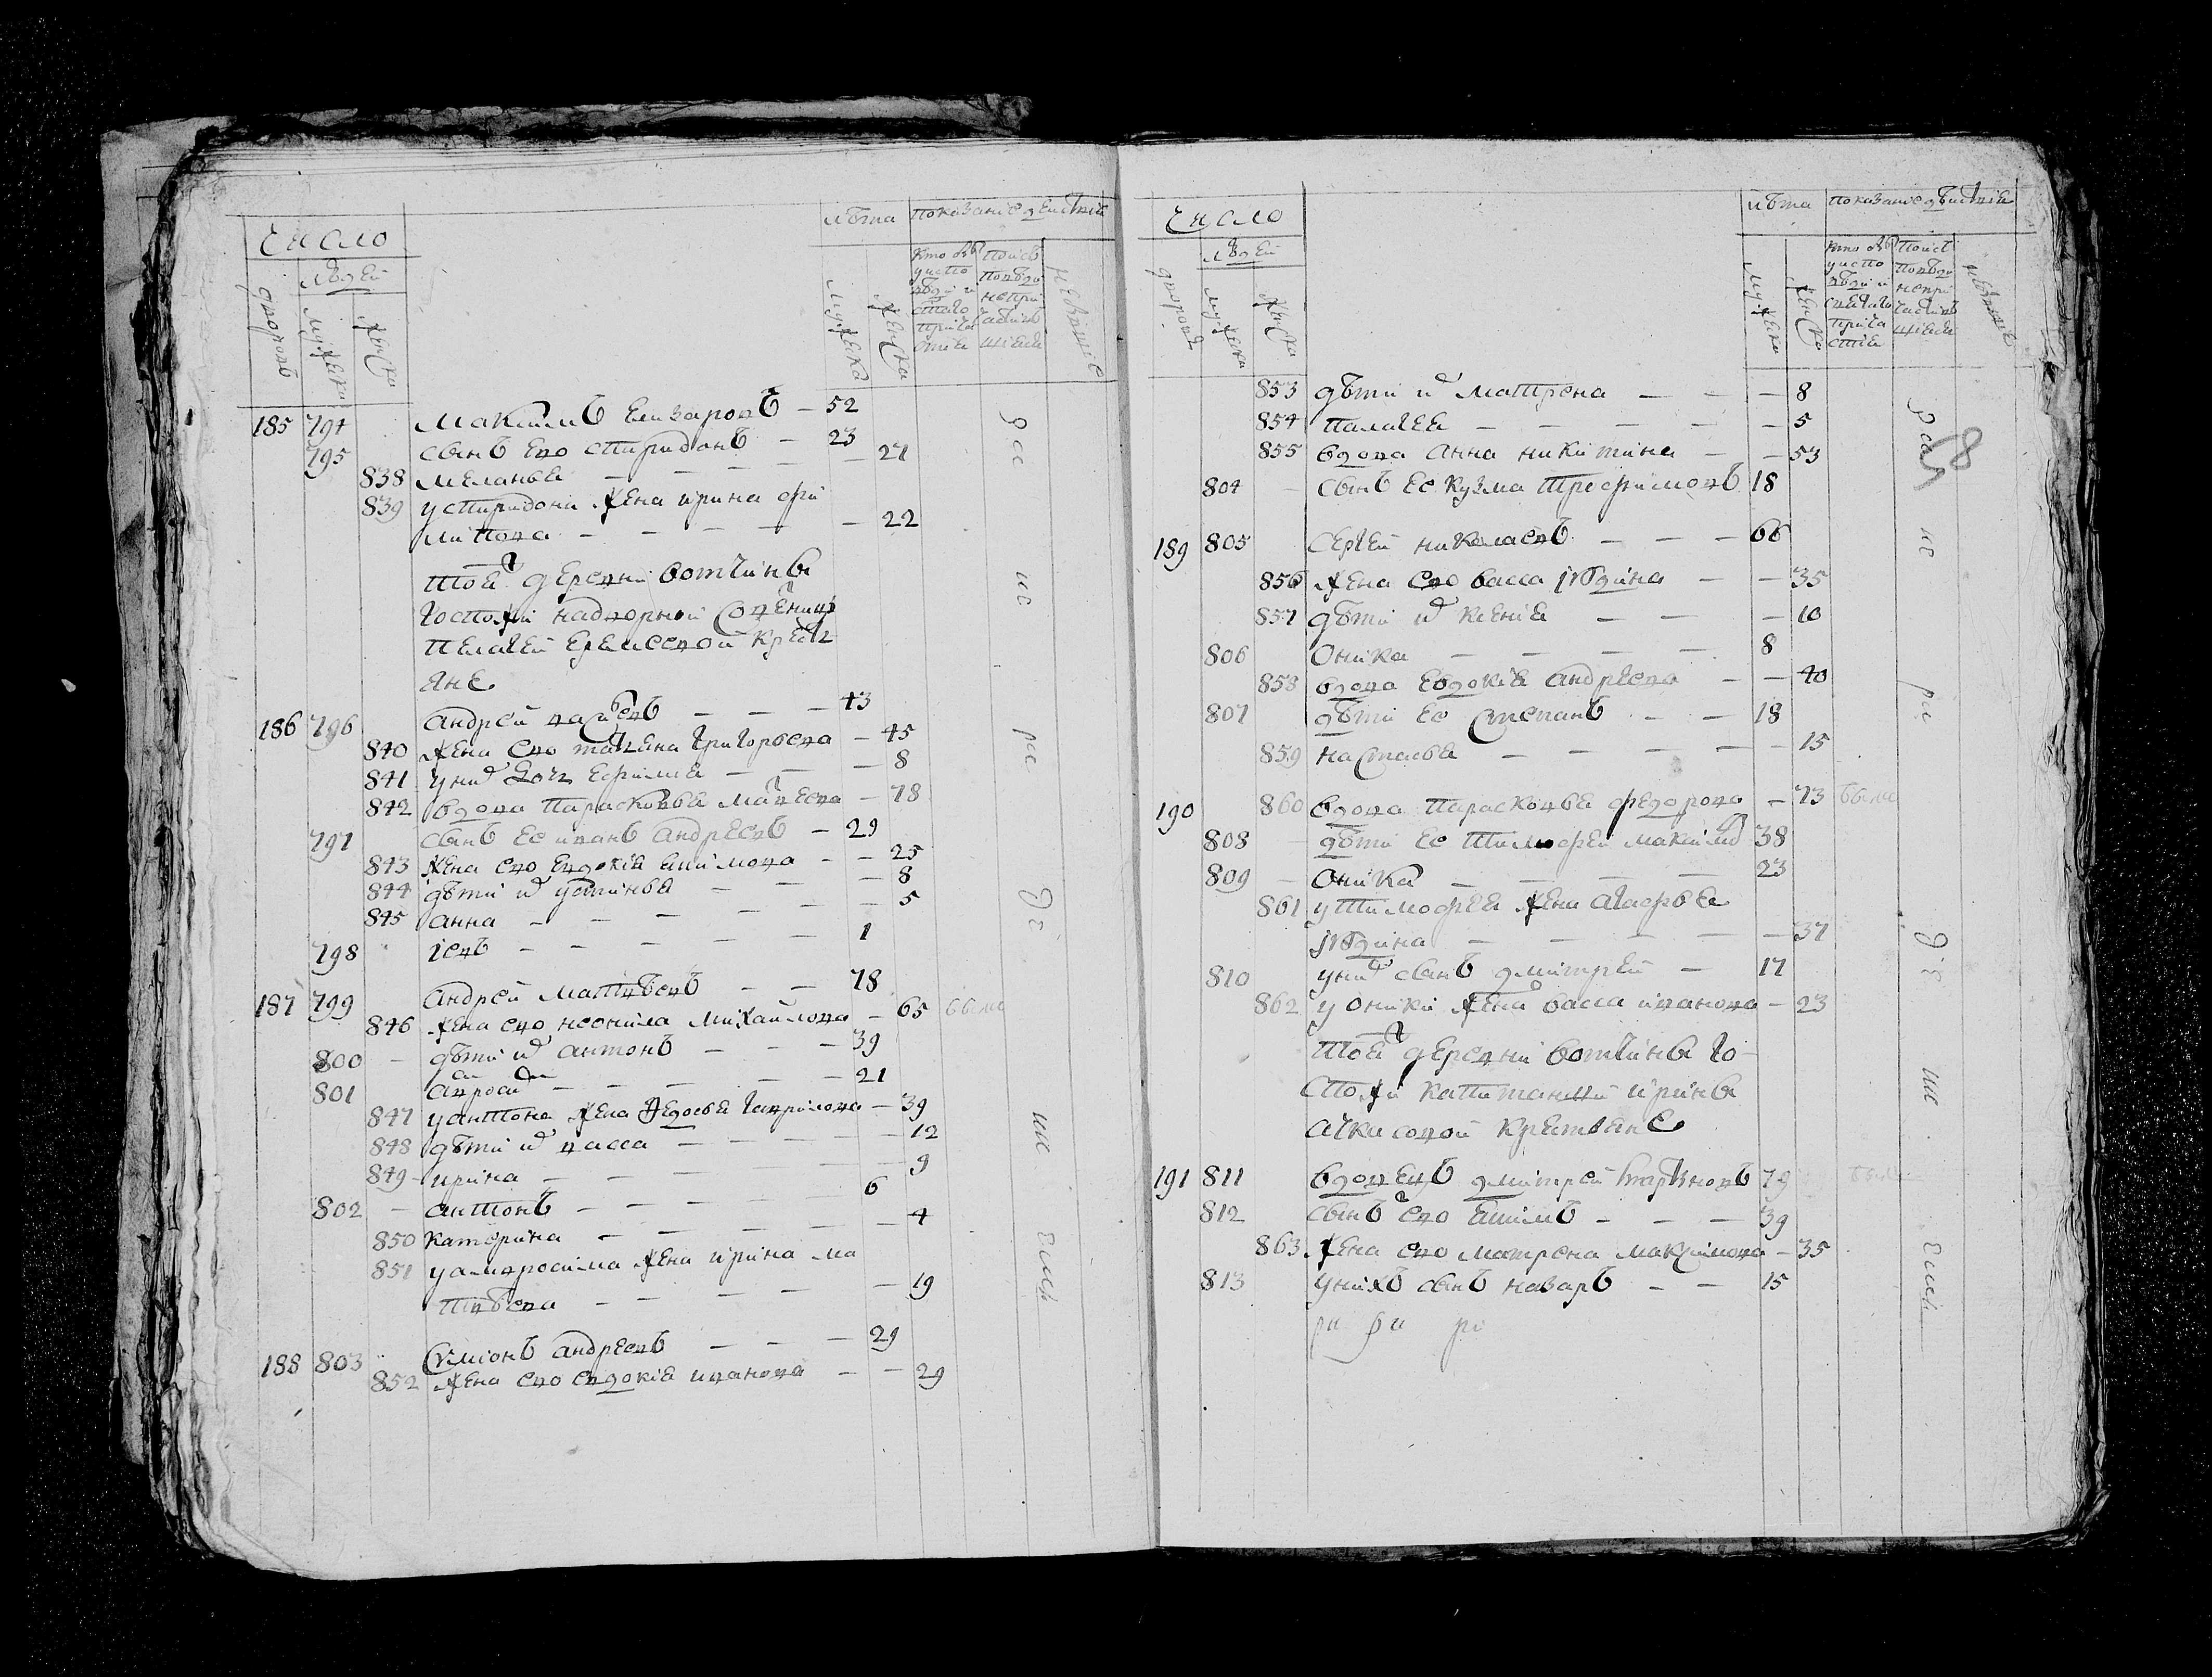 Число
лѣта показание действий
людей
дворовъ
мужеска
женска
мужеска
женска
185 794 Максимъ Елизаровъ — 52
795 сынъ ево спиридонъ — 23
838 меланья — — — — 27
839 у спиридона жена ирина фи
липова — — — — 22
тоя деревни вотчины
госпожи надворной советницы
пелагеи еремеевой крестья
яне
186 796 андрей — — — 43
840 жена ево татьяна григорьева — 45
841 у них дочь ефимия — — — 8
842 вдова парасковья матвеева — 78
797 сынъ ее иванъ андреевъ — 29
843 жена ево евдокия акимова — — 25
844 дѣти их устинья — — — 8
845 анна — — — — — 5
798 иевъ — — — — — 1
187 799 андрей матвѣевъ — — 78
846 жена ево неонила михайлова — 65 были
800 — дѣти их антонъ — — — 39
801 — — — — — 21
847 у антона жена федосья гаврилова — 39
848 дѣти их васса — — — — — 12
849 ирина — — — — — 9
802 — антонъ — — — — 6
850 катерина — — — — — 4
851 у амвросима жена ирина ма
твѣева — — — — — 19
188 803 симионъ андреевъ — — — 29
852 жена ево евдокия иванова — — 29
Число
лѣта показание действия
людей
мужеска
женска
мужеска
женска
98
853 дѣти их матрена — — — 8
854 палагея — — — — — 5
855 вдова анна никитина — — 53
804 — сынъ ее кузма трофимовъ 18
189 805 сергей николаевъ — — — 66
856 жена ево васса июдина — — 35
857 дѣти их ксения — — — 10
806 оника — — — — 8
858 вдова евдокия андреева — — 40
807 дѣти ее степанъ — — 18
859 настасья — — — — — 15
190 860 вдова парасковья федорова — 73 были
808 — дѣти ее тимофей максимо 38
809 — оника — — — — 23
861 у тимофея жена агафья
июдина — — — — — 37
810 у них сынъ дмитрей — 17
862 у оники жена васса иванова — 23
тоя деревни вотчины го-
спожи капитанши ирины
ачкасовой крестьяне
191 811 вдовецъ дмитрей 79 были
812 сынъ ево акимъ — — — 39
863 жена ево матрена максимова — 35
813 у нихъ сынъ назаръ — — 15